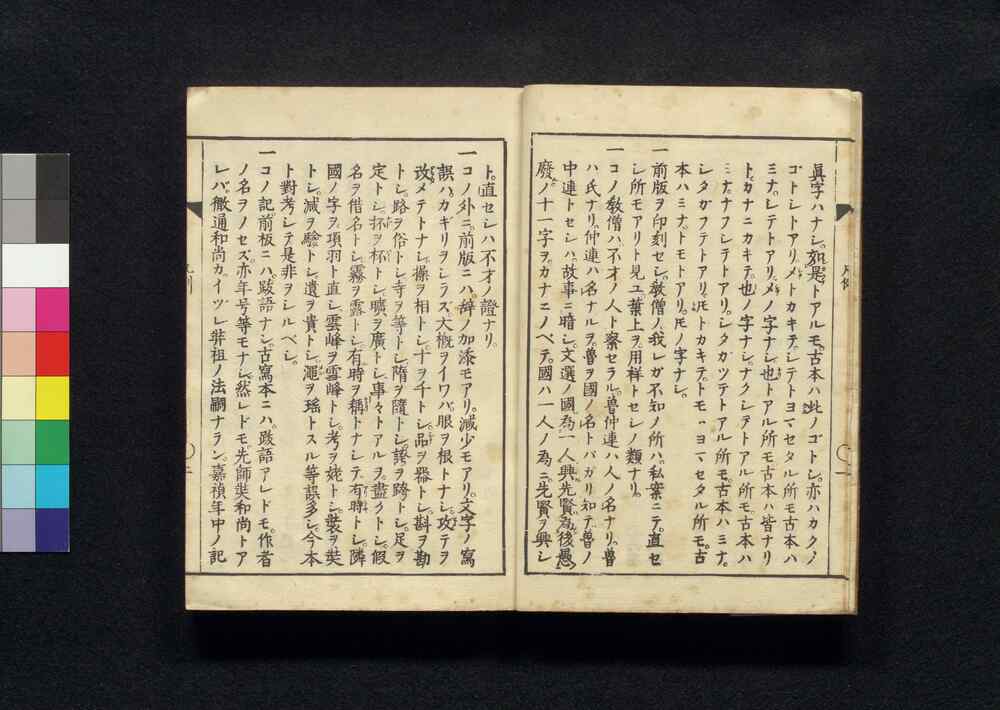 眞字ハナシ。如是トアルモ。古本ハ此ノゴトシ。亦ハカクノ
ゴトシトアリ。メトカキテ。シテトヨマセタル所モ古本ハ
ミナ。シテトアリ。メノ字ナシ。也トアル所モ古本ハ皆ナリ
ト。カナニカキテ。也ノ字ナシ。ナクシテトアル所モ古本ハ
ミナ。ナフシテトアリ。シタガツテトアル所モ。古本ハミナ。
シタガフテトアリ。トカキテ。トモヨマセタル所モ。古
本ハミナ。トモトアリ。ノ字ナシ。
一前版ヲ印刻セシ。敎僧ノ我レガ不知ノ所ハ。私案ニテ。直セ
シ所モアリト見ユ。葉上ヲ。用祥トセシノ類ナリ。
一コノ敎僧ハ。不才ノ人ト察セラル。魯仲連ハ人ノ名ナリ。魯
ハ氏ナリ。仲連ハ名ナルヲ。魯ヲ國ノ名トバガリ知テ。魯ノ
中連トセシハ。故事ニ暗シ。文選ノ國為一人興。先賢為後愚
廢ノ十一字ヲ。カナニノベテ。國ハ一人ノ為ニ。先賢ヲ興シ
ト。直セシハ不才ノ證ナリ。
一コノ外ニ。前版ニハ辞ノ加添モアリ。減少モアリ。文字ノ寫
誤ハ。カギリヲシラズ。大概ヲイワバ。服ヲ根トナシ。攻テヲ
改メテトナシ。操ヲ相トシ。寸ヲ千トシ。品ヲ器トシ。斟ヲ勘
トシ。路ヲ俗トシ。寺ヲ等トシ。隋ヲ隨トシ。誇ヲ跨トシ。足ヲ
定トシ。抔ヲ杯トシ。曠ヲ廣トシ。事々トアルヲ。盡クトシ。假
名ヲ借名トシ。霧ヲ露トシ。有時ヲ稱トナシテ。有時トシ。隣
國ノ字ヲ。項羽ト直シ。雲峰ヲ雪峰トシ。考ヲ姥トシ。裝ヲ奘
トシ。減ヲ驗トシ。遺ヲ貴トシ。渑ヲ瑤トスル等。誤多シ。今本
ト對考シテ。是非ヲシルベシ。
一コノ記前板ニハ。跋語ナシ。古寫本ニハ。跋語アレドモ。作者
ノ名ヲノセズ。亦年号等モナシ。然レドモ。先師奘和尚トア
レバ。徹通和尚カ。イツレ幷祖ノ法嗣ナラン。嘉禎年中ノ記